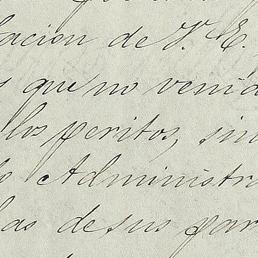 lacion de V. E.
que no venid
los peritos, sin
Administra
las de sus par